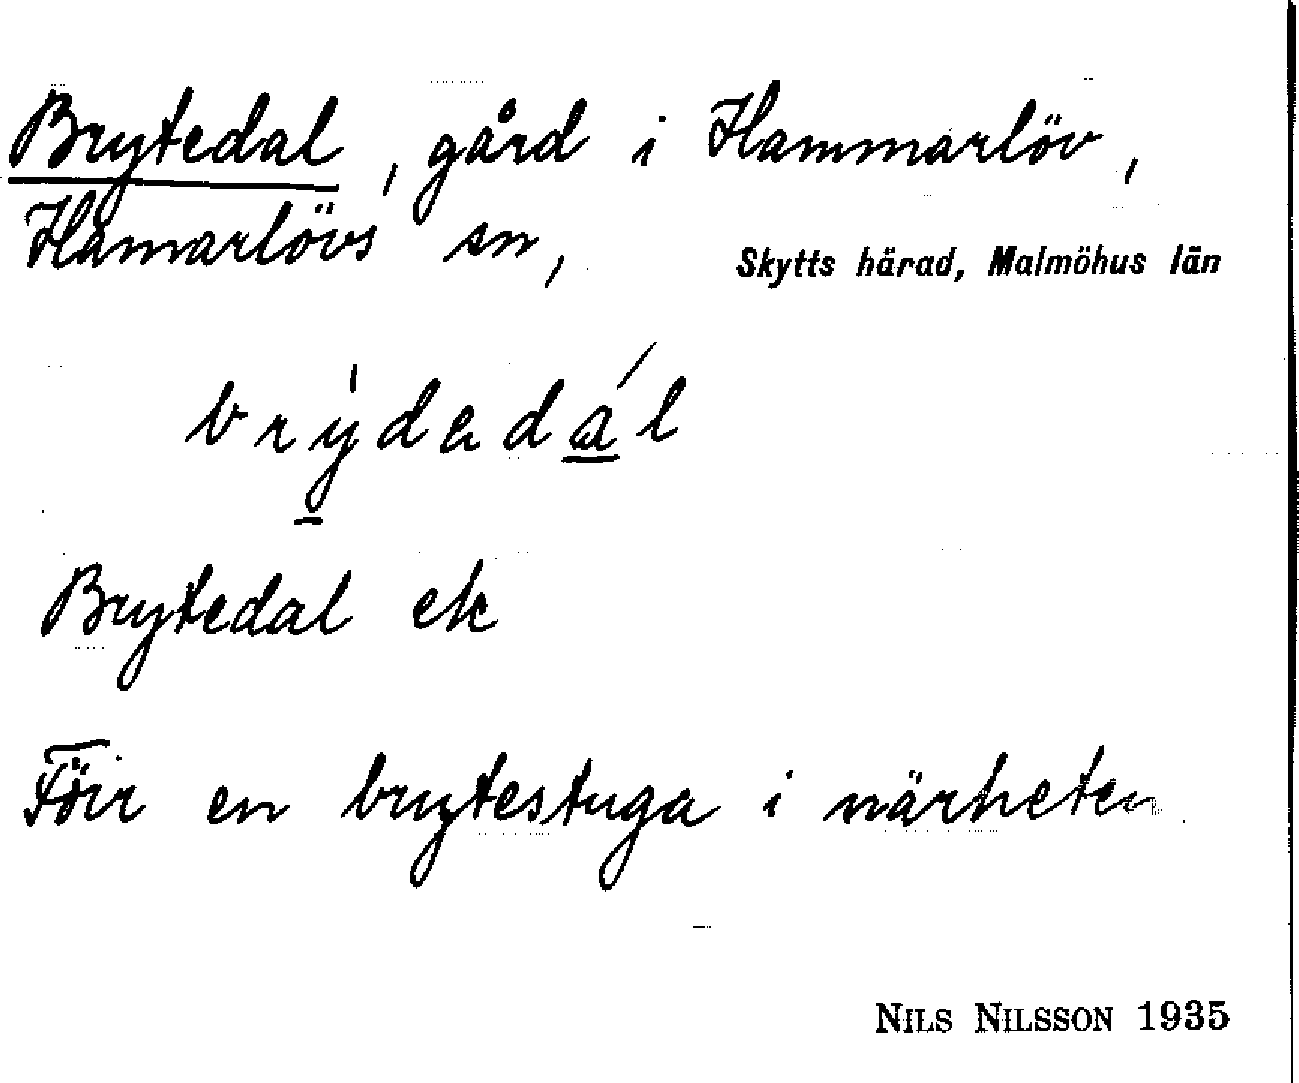 Brytedal, gård i Hammarlöv,
Hamarlövs sn, Skytts härad, Malmöhus län
brýdadál
Brytedal ek
Förr en brytestuga i närheten.
NILS NILSSON 1935